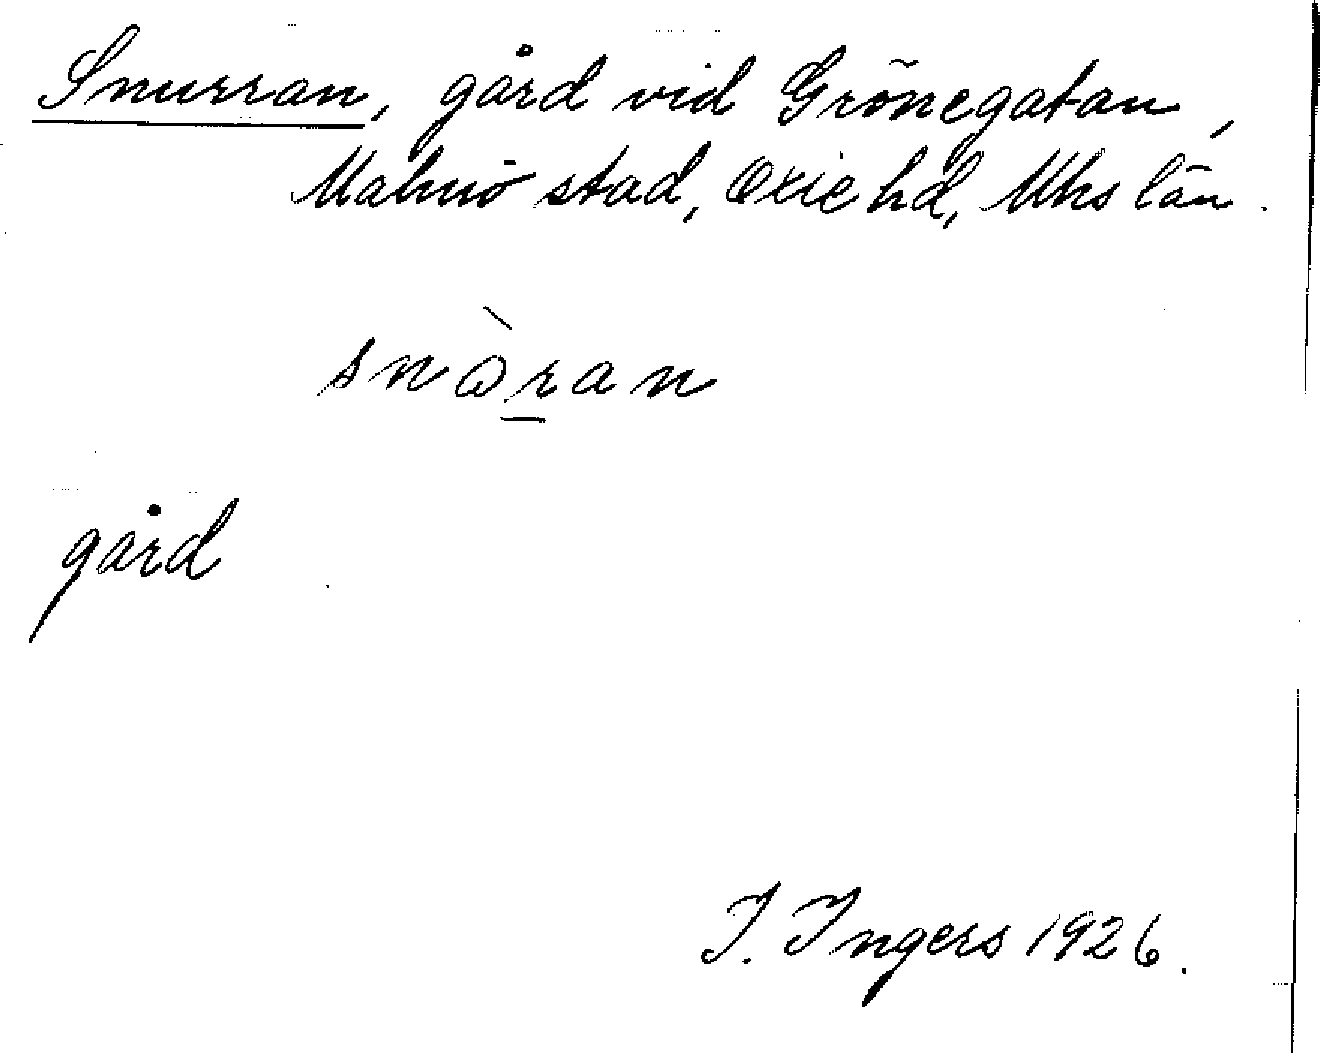 Snurran, gård vid Grönegatan,
Malmö stad, Oxie hd, Mhs län.
snɷ̀ṟan
gård
I. Ingers 1926.